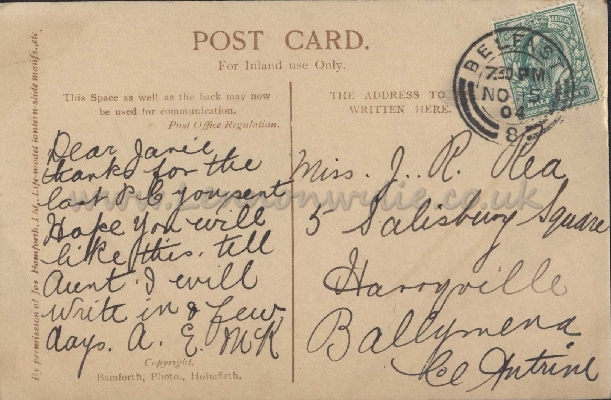 POST CARD.
For Inland use Only.
This Space as well as the back may now
be used for communication.
Post Office Regulation.
THE ADDRESS TO
WRITTEN HERE.
BELFAST
7.30 PM
NO 5
04
8
Dear Janie
thanks for the
last P. C you sent
Hope you will
like this. tell
Aunt I will
write in a few
days. A. E. McK
Miss. J. R. Rea
5 Salisbury Square
Harryville
Ballymena
Co Antrim
Copyright.
Bamforth, Photo., Holmfirth.
By permission of Jas Bamforth, Ltd., Life-model lantern-slide manfs., etc.
www.lennonwylie.co.uk